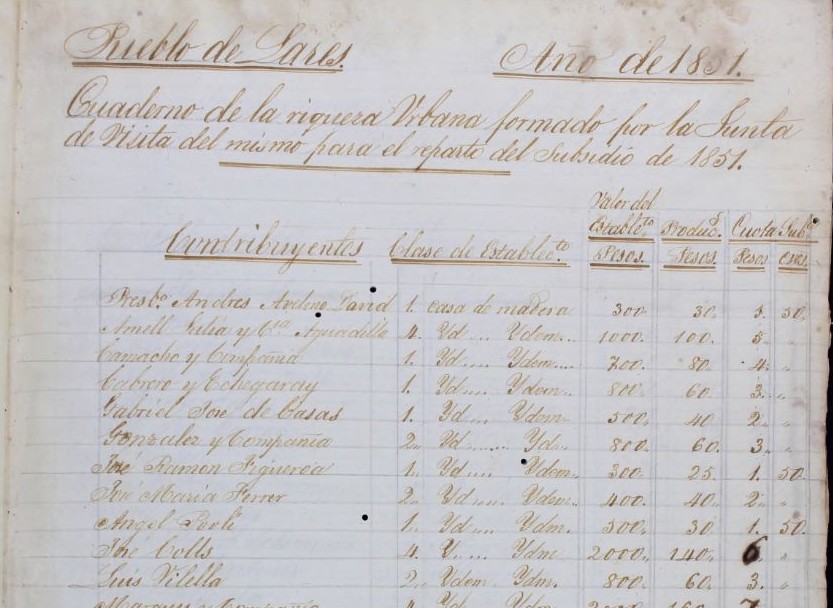 Pueblo de Lares. Año de 1851.
Cuaderno de la riqueza Urbana formado por la Junta
de Visita del mismo para el reparto del Subsidio de 1851.
Valor del
Contribuyentes Clase de Establec.to Establec.to Produc.s Cuota Sub.o
Pesos. Pesos. Pesos cves.
Presb.o Andres Avelino David 1. casa de madera 300. 30. 50.
Amell Julia y C.ia Aguadilla 4. Yd.... Ydem... 1000. 100. 5. "
Camacho y Compañia 1. Yd.... Ydem.... 700. 80. 4. "
Cabrero y Echegaray 1. Yd.... Ydem.. 800. 60. 3. "
Gabriel José de Casas 1. Yd.... Ydem. 500. 40. 2. "
Gonzalez y Compañia 2. Yd....... Yd... 800. 60. 3. "
José Ramon Figueroa 1. Yd.... Ydem.. 300. 25. 1. 50.
José Maria Ferrer 2. Yd.... Ydem.. 400. 40. 2. "
Angel Paoli 1. Yd.... Ydm. 300. 30 1. 50.
José Colls 4. Y..... Ydm. 2000. 140. 6 "
Luis Vilella 2. Ydem. Ydm. 800. 60. 3. "
Marquez y Compañia 4. Yd. Ydm. 160. 7.